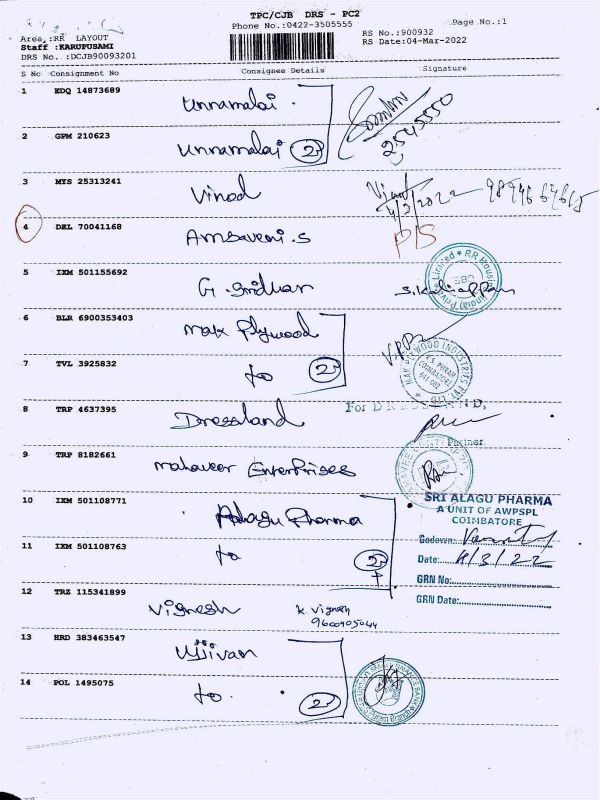 TPC/CJB DRS - PC2
Phone No.:0422-3505555
Page No.:1
Area :RR LAYOUT
RS No.:900932
Staff :KARUPUSAMI
RS Date:04-Mar-2022
DRS No. :DCJB90093201
S No Consignment No Consignee Details Signature
1 EDQ 14873689 Unnamalai
2545550
2 GPM 210623 Unnamalai 2
3 MYS 25313241 Vinod
4/3/2022
4 DEL 70041168 Amsaveni.S P/S
5 IXM 501155692 G. Sridhar
RR Housing (India) Private Limited
6 BLR 6900353403 Mak Plywood
7 TVL 3925832 to 2
MAK PLYWOOD INDUSTRIES PVT LTD
R.S. PURAM
COIMBATORE
641 002
8 TRP 4637395 Dressland
For DRESSLAND,
Partner
9 TRP 8182661 Mahaveer Enterprises
10 IXM 501108771 Alagu Pharma
SRI ALAGU PHARMA
A UNIT OF AWPSPL
COIMBATORE
Godown:
11 IXM 501108763 to 2
Date: 4/3/22
GRN No:
GRN Date:
12 TRZ 115341899 Vignesh K Vignesh
9600905044
13 HRD 383463547 Ujjivan
14 POL 1495075 to 2